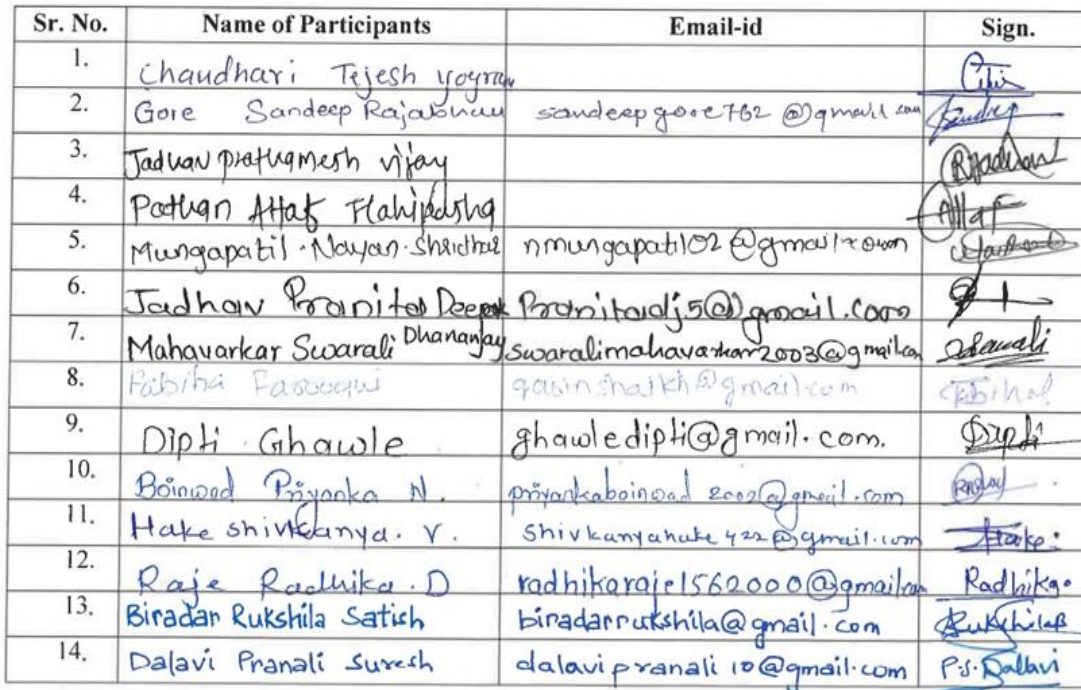 Sr. No. Name of Participants Email-id Sign.
1. Chaudhari Tejesh
2. Gore Sandeep Rajabhau sandeepgore762@gmail.com
3. Jadhav prathamesh vijay
4. Pathan Altaf
5. Mungapatil. Nayan. Shridhar nmungapatil02@gmail.com
6. Jadhav Pranita Deepak Pranitadj5@gmail.com
7. Mahavarkar Swarali Dhananjay swaralimahavarkar2003@gmail.com
8. Farooqui @gmail.com
9. Dipti Ghawle ghawledipti@gmail.com. Dipti
10. Boinwad Priyanka N. priyankaboinwad2002@gmail.com
11. Hake shivkanya. V. shivkanyahake422@gmail.com Hake.
12. Raje Radhika. D radhikaraje1562000@gmail.com Radhika.
13. Biradar Rukshila Satish biradarrukshila@gmail.com
14. Dalavi Pranali Suresh dalavipranali10@gmail.com P.S. Dallavi